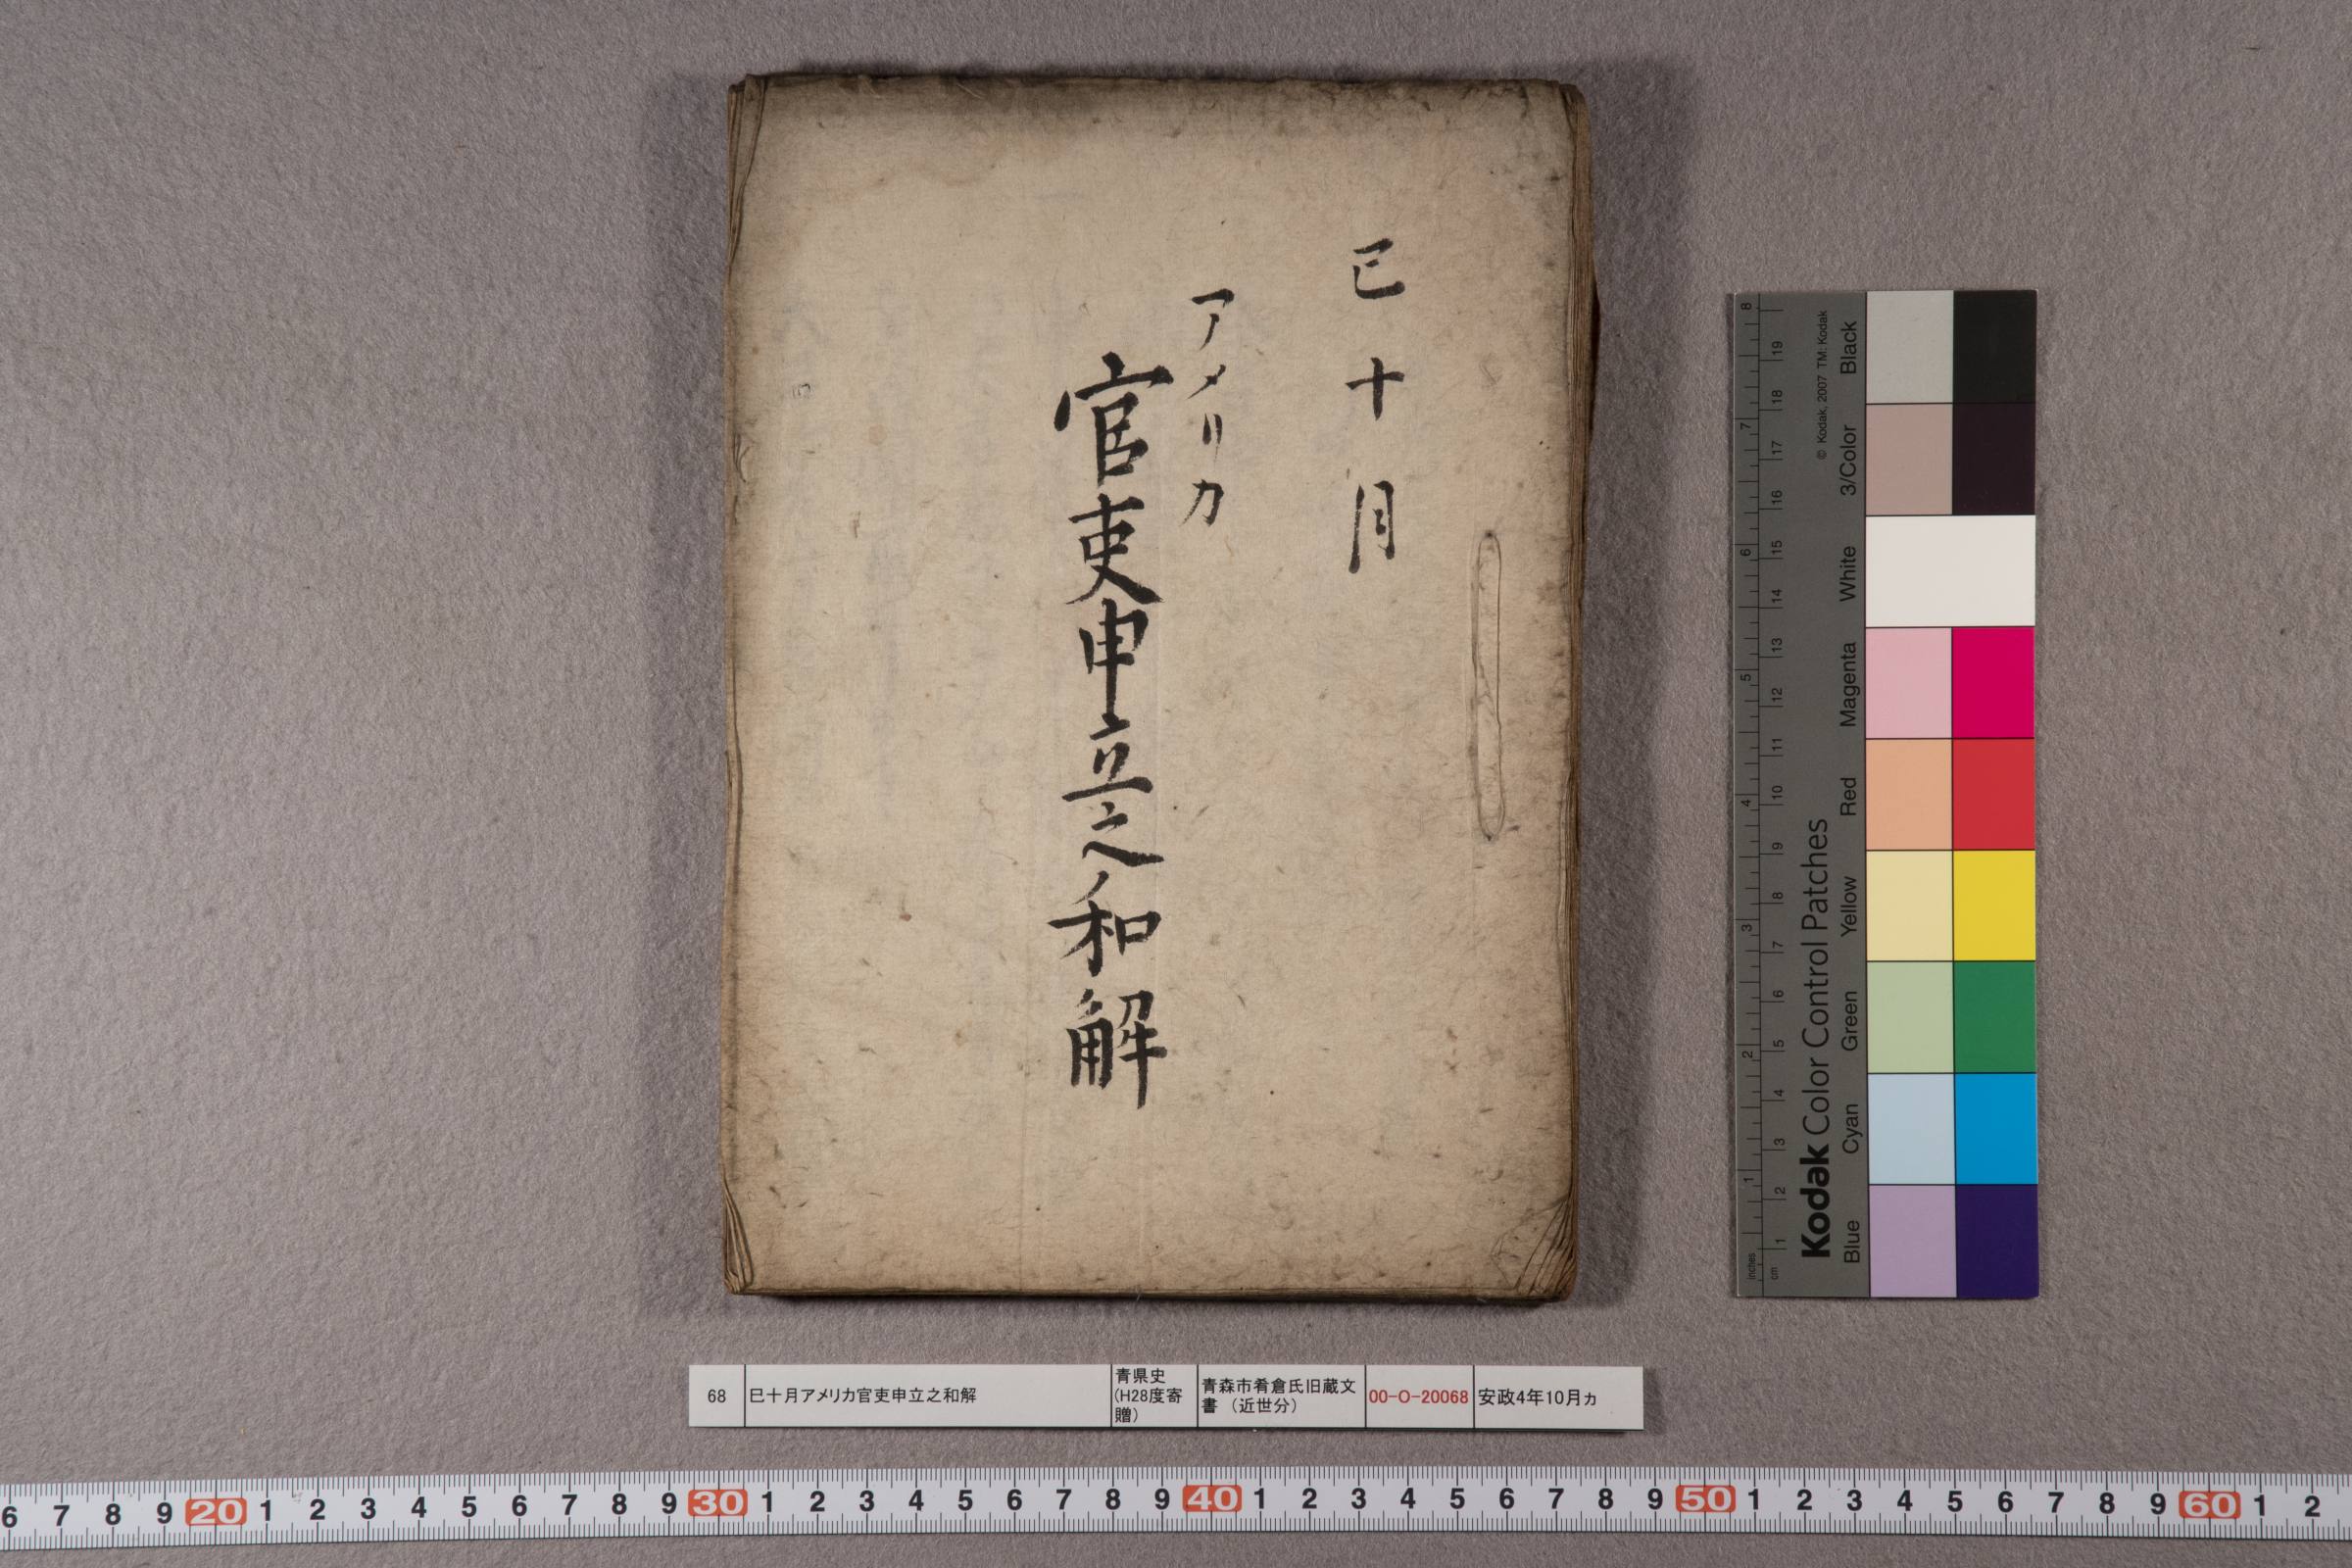 巳十月
アメリカ
官吏申立之和解
68
巳十月アメリカ官吏申立之和解
青県史
(H28度寄
贈)
青森市肴倉氏旧蔵文
書 (近世分)
00-O-20068
安政4年10月ヵ
© Kodak, 2007 TM: Kodak
Kodak Color Control Patches
Black
3/Color
White
Magenta
Red
Yellow
Green
Cyan
Blue
8 7 6 5 4 3 2 1 inches
19 18 17 16 15 14 13 12 11 10 9 8 7 6 5 4 3 2 1 cm
6 7 8 9 20 1 2 3 4 5 6 7 8 9 30 1 2 3 4 5 6 7 8 9 40 1 2 3 4 5 6 7 8 9 50 1 2 3 4 5 6 7 8 9 60 1 2